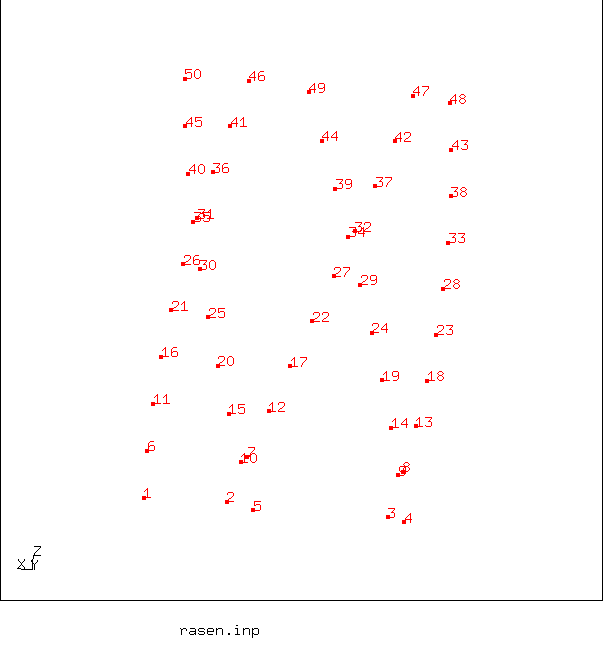 50 46 49 47 48
45 41 44 42 43
40 36 39 37 38
35 31 34 32 33
26 30 27 29 28
21 25 22 24 23
16 20 17 19 18
11 15 12 14 13
6 10 7 9 8
1 2 5 3 4
Z
X Y
rasen.inp